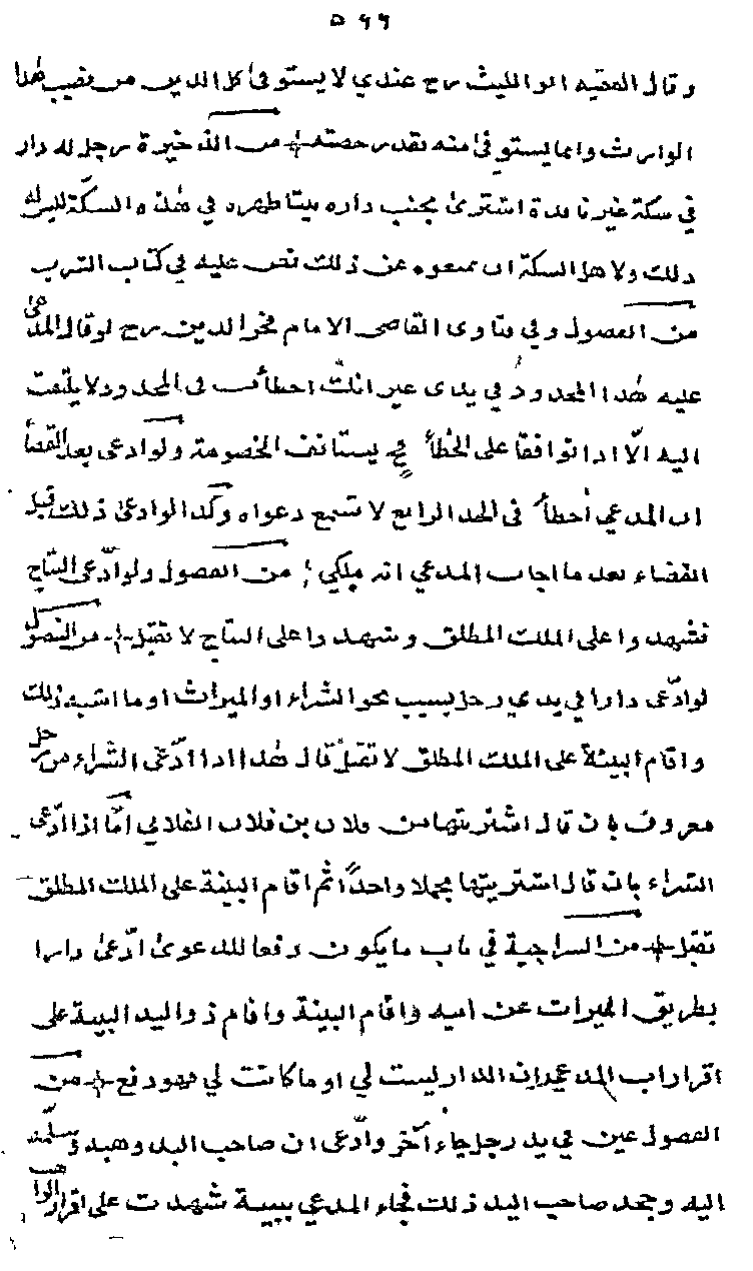 ٥٩٩
وقال الفقيه ابو الليث رح عندي لا يستوفى كل الدين من نصيب هذا
الوارث وانما يستوفى منه بقدر حصته من الذخيرة رجل له دار
في سكة غير نافدة اشترى بجنب داره بيتا ظهره في هذه السكة ليس له
ذلك ولاهل السكة ان يمنعوه عن ذلك نص عليه في كتاب الشرب
من الفصول وفي فتاوى القاضى الامام فخر الدين رح لو قال المدعى
عليه هذا المحدود في يدى غير انك اخطأت فى الحدود لا يلتفت
اليه الا اذا توافقا على الخطأ فح يستانف الخصومة ولو ادعى بعد القضا
ان المدعي أخطأ فى الحد الرابع لا تسمع دعواه وكذا لو ادعى ذلك قبل
القضاء بعد ما اجاب المدعي انه ملكي من الفصول ولو ادّعى النتاج
فشهدوا على الملك المطلق وشهدوا على النتاج لا تقبل من الفصول
لو ادّعى دارا في يدي رجل بسبب نحو الشراء او الميراث او ما اشبه ذلك
واقام البينة على الملك المطلق لا تقبل قال هذا اذا ادّعى الشراء من رجل
معروف بان قال اشتريتها من فلان بن فلان الفلاني امّا اذا ادّعى
الشراء بان قال اشتريتها مجملا واحدًا ثم اقام البينة على الملك المطلق
تقبل من السراجية في باب ما يكون دفعا للدعوى ادّعى دارا
بطريق الميراث عن ابيه واقام البينة واقام ذو اليد البينة على
اقرار اب المدعي ان الدار ليست لي او ما كانت لي فهو دفع من
الفصول عين في يد رجل جاء آخر وادّعى ان صاحب اليد وهبه وسلّمه
اليه وجحد صاحب اليد ذلك فجاء المدعي ببينة شهدت على اقرار الواهب